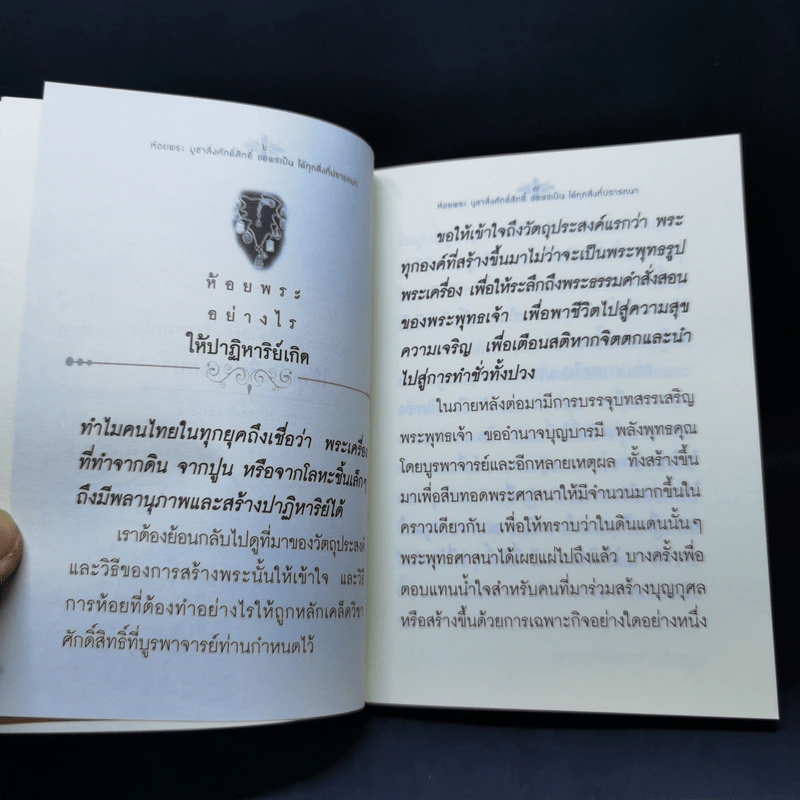 ห้อยพระ บูชาสิ่งศักดิ์สิทธิ์ ขอพรเป็น ได้ทุกสิ่งที่ปรารถนา
ห้อยพระ
อย่างไร
ให้ปาฏิหาริย์เกิด
ทำไมคนไทยในทุกยุคถึงเชื่อว่า พระเครื่อง
ที่ทำจากดิน จากปูน หรือจากโลหะชิ้นเล็กๆ
ถึงมีพลานุภาพและสร้างปาฏิหาริย์ได้
เราต้องย้อนกลับไปดูที่มาของวัตถุประสงค์
และวิธีของการสร้างพระนั้นให้เข้าใจ และวิธี
การห้อยที่ต้องทำอย่างไรให้ถูกหลักเคล็ดวิชา
ศักดิ์สิทธิ์ที่บูรพาจารย์ท่านกำหนดไว้
ห้อยพระ บูชาสิ่งศักดิ์สิทธิ์ ขอพรเป็น ได้ทุกสิ่งที่ปรารถนา
ขอให้เข้าใจถึงวัตถุประสงค์แรกว่า พระ
ทุกองค์ที่สร้างขึ้นมาไม่ว่าจะเป็นพระพุทธรูป
พระเครื่อง เพื่อให้ระลึกถึงพระธรรมคำสั่งสอน
ของพระพุทธเจ้า เพื่อพาชีวิตไปสู่ความสุข
ความเจริญ เพื่อเตือนสติหากจิตตกและนำ
ไปสู่การทำชั่วทั้งปวง
ในภายหลังต่อมามีการบรรจุบทสรรเสริญ
พระพุทธเจ้า ขออำนาจบุญบารมี พลังพุทธคุณ
โดยบูรพาจารย์และอีกหลายเหตุผล ทั้งสร้างขึ้น
มาเพื่อสืบทอดพระศาสนาให้มีจำนวนมากขึ้นใน
คราวเดียวกัน เพื่อให้ทราบว่าในดินแดนนั้นๆ
พระพุทธศาสนาได้เผยแผ่ไปถึงแล้ว บางครั้งเพื่อ
ตอบแทนน้ำใจสำหรับคนที่มาร่วมสร้างบุญกุศล
หรือสร้างขึ้นด้วยการเฉพาะกิจอย่างใดอย่างหนึ่ง